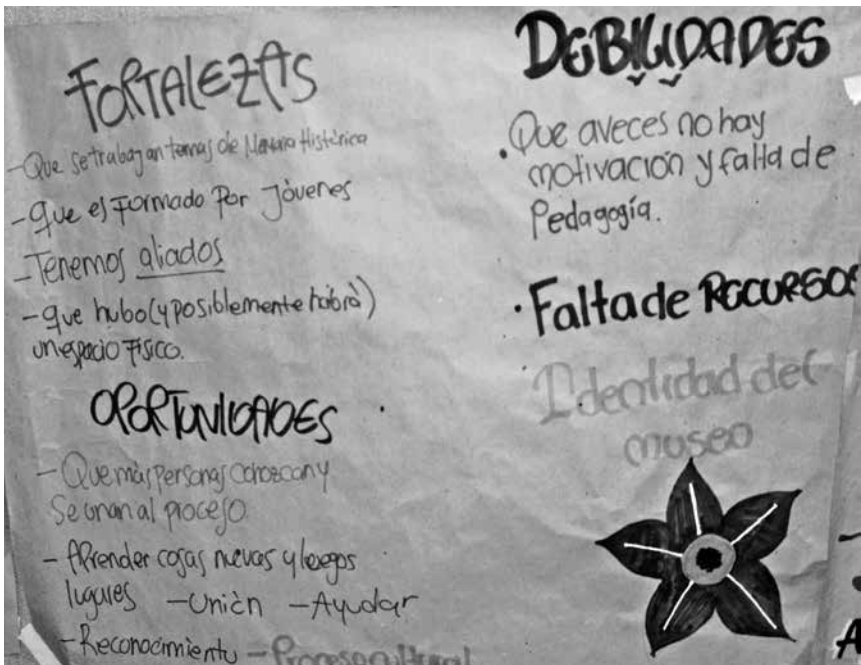 FORTALEZAS
- Que se trabajan temas de Memoria Histórica
- que es Formado Por Jóvenes
- Tenemos aliados
- que hubo (y posiblemente habrá)
un espacio Físico.
OPORTUNIDADES
- Que más personas conozcan y
Se unan al proceso.
- Aprender cosas nuevas y
lugares - Unión - Ayudar
- Reconocimiento - Proceso cultural
DEBILIDADES
· Que aveces no hay
motivación y falta de
Pedagogía.
· Falta de RECURSOS
Identidad del
museo
A